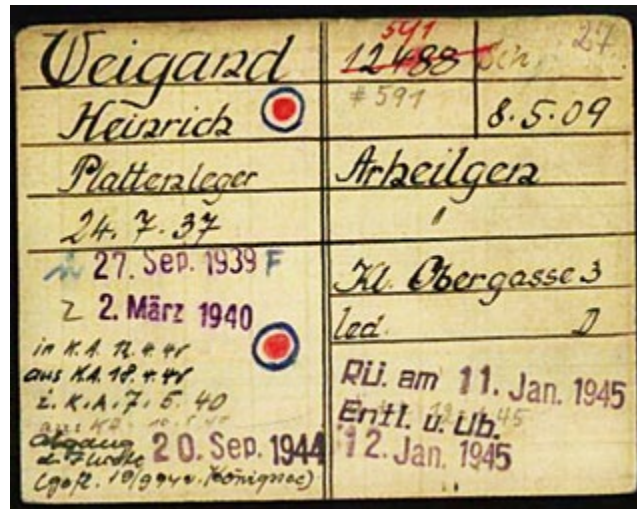 Weigand
Heinrich
Plattenleger
24. 7. 37
27. Sep. 1939 F
2. März 1940
in K.A. 12.4.40
aus K.A. 18.4.40
z. K.A. 7. 5. 40
Abgang
d. Flucht 20. Sep. 1944
591
12488 Sch. 27
# 591
8.5.09
Arheilgen
"
Kl. Obergasse 3
led. D
RÜ. am 11. Jan. 1945
Entl. u. Üb.
12. Jan. 1945